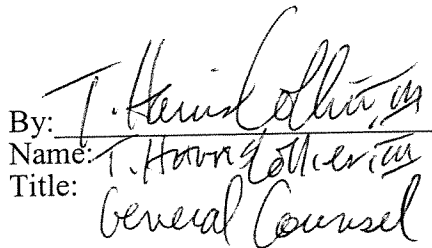 By: T. Harris Collier, III
Name: T. Harris Collier, III
Title:
General Counsel